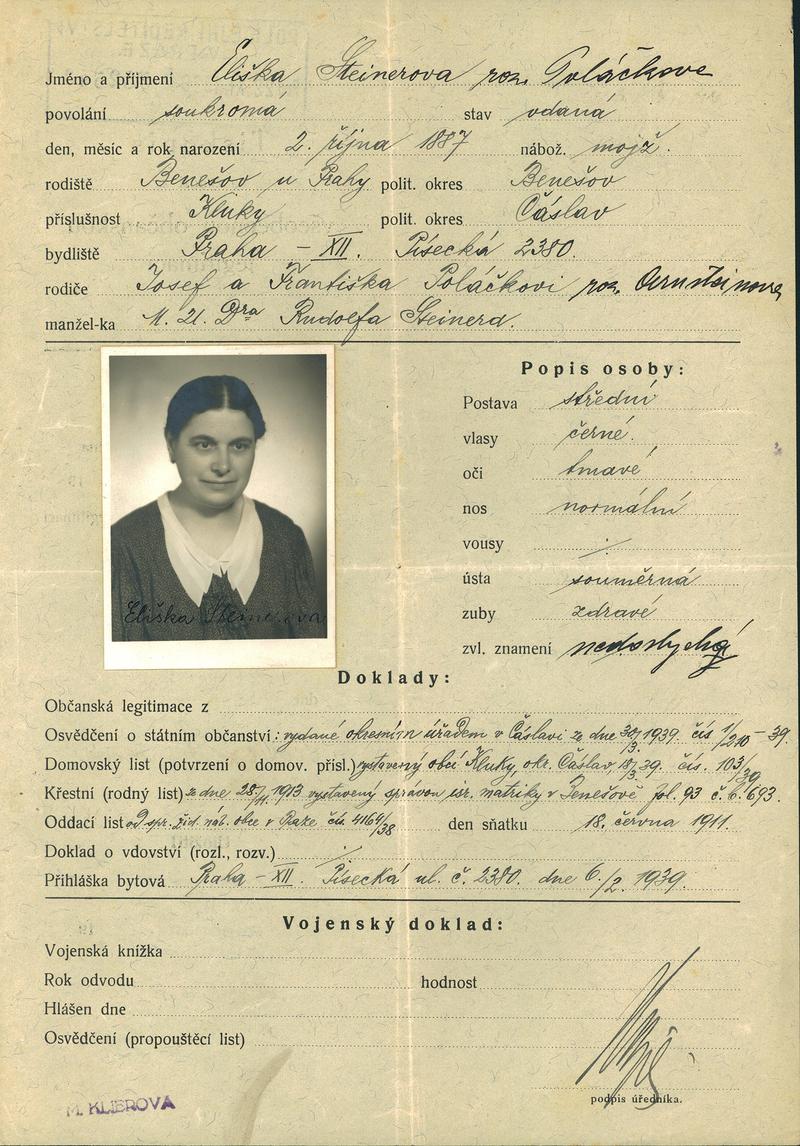 Jméno a příjmení Eliška Steinerova roz. Poláčkova
povolání soukromá stav vdaná
den, měsíc a rok narození 2. října 1887 nábož. mojž.
rodiště Benešov u Prahy polit. okres Benešov
příslušnost Kluky polit. okres Čáslav
bydliště Praha - XII. Písecká 2380.
rodiče Josef a Františka Poláčkovi roz.
manžel-ka Dra Rudolfa Steinera.
Popis osoby:
Postava střední
vlasy černé.
oči tmavé
nos normální
vousy ./.
ústa souměrná
zuby zdravé
zvl. znamení nedoslychá
Eliška Steinerova
Doklady:
Občanská legitimace z
Osvědčení o státním občanství: vydané okresním úřadem v Čáslavi ze dne 30/3. 1939 čís 1/210 - 39.
Domovský list (potvrzení o domov. přísl.) vystavený obcí Kluky, okr. Čáslav, 18/3 39. čís. 103/39
Křestní (rodný list) ze dne 28/11. 1913 vystavený správou isr. matriky v Benešově fol. 93 č. b. 693.
Oddací list od spr. žid. náb. obce v Praze čís. 4164/38 den sňatku 18. června 1911.
Doklad o vdovství (rozl., rozv.) ./.
Přihláška bytová Praha - XII. Písecká ul. č. 2380. dne 6./2. 1939.
Vojenský doklad:
Vojenská knížka
Rok odvodu hodnost
Hlášen dne
Osvědčení (propouštěcí list)
podpis úředníka.
M. KLIEROVA